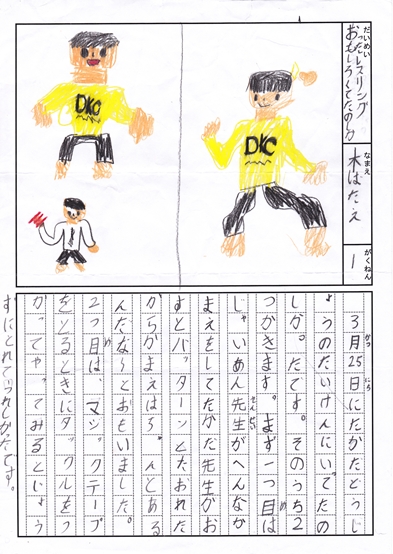 だいめい
おもしろくてたのしか
ったレスリング
なまえ
木はたえ
がくねん
1
DKC
DKC
3月25日にたかだどうじ
がつ にち
ょうのたいけんにいってたの
しかったです。そのうち2
つかきます。まず一つ目は
め
じゃいあん先生がへんなか
せんせい
まえをしてたかだ先生がお
すとバッターンとたおれた
からかまえはちゃんとある
んだな〜とおもいました。
2つ目は、マジックテープ
め
をとるときにタックルをつ
かってやってみるとじょう
ずにとれてうれしかったです。